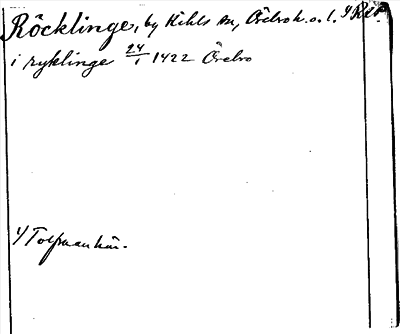 Röcklinge, by Kihls sn, Örebro k. o. l.
i ryklinge 24/1 1422 Örebro
1) Tolfmanhäm.